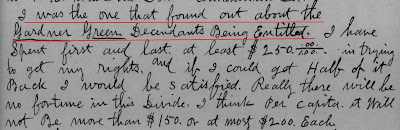 I was the one that found out about the
Gardner Green Decendants Being Entitled. I have
Spent first and last, at least $250.00/100. in trying
to get my rights, and if I could got Half of it
Back I would be satisfied. Really there will be
no fortune in this Divide. I think Per capita. it Will
not Be more than $150. or at most $200. Each